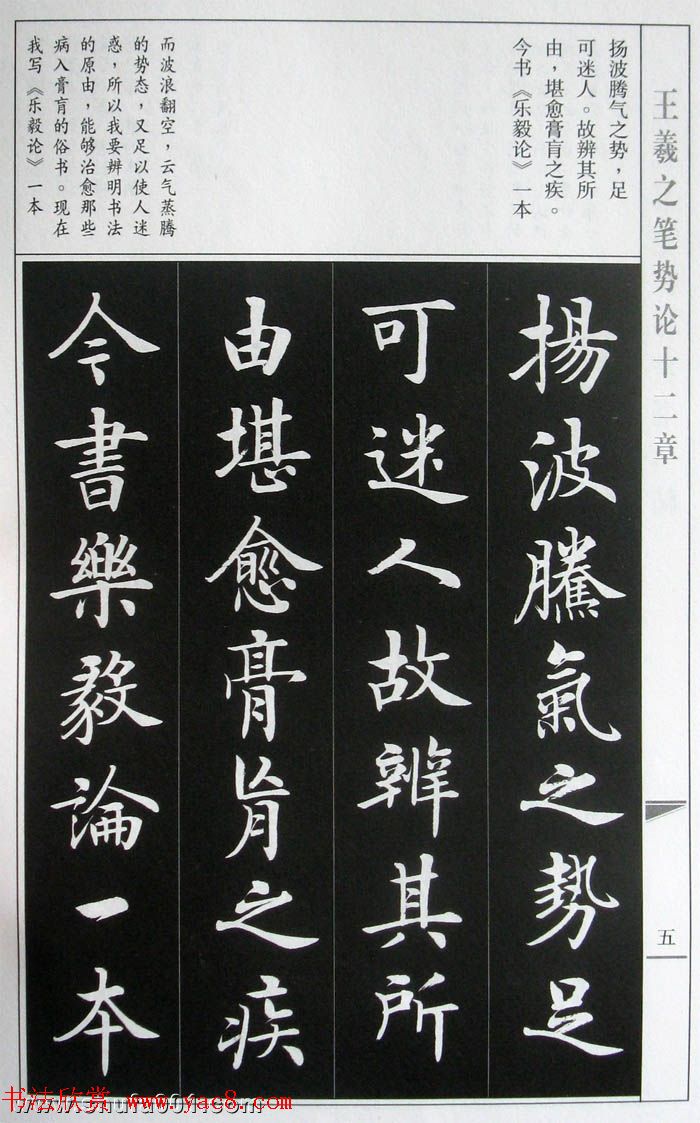 王羲之笔势论十二章
五
扬波腾气之势，足
可迷人。故辨其所
由，堪愈膏肓之疾。
今书《乐毅论》一本
而波浪翻空，云气蒸腾
的势态，又足以使人迷
惑，所以我要辨明书法
的原由，能够治愈那些
病入膏肓的俗书。现在
我写《乐毅论》一本
揚波騰氣之勢足
可迷人故辨其所
由堪愈膏肓之疾
今書樂毅論一本
书法欣赏 www.yac8.com